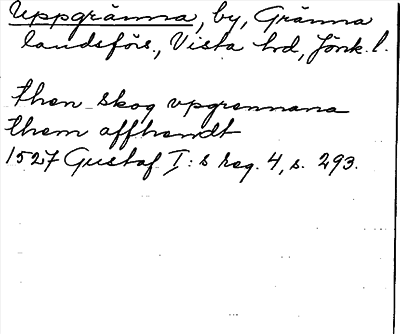 Uppgränna, by, Gränna
landsförs., Vista hd, Jönk. l.
then skog vpgrennana
them affhendt
1527 Gustaf I:s reg. 4, s. 293.